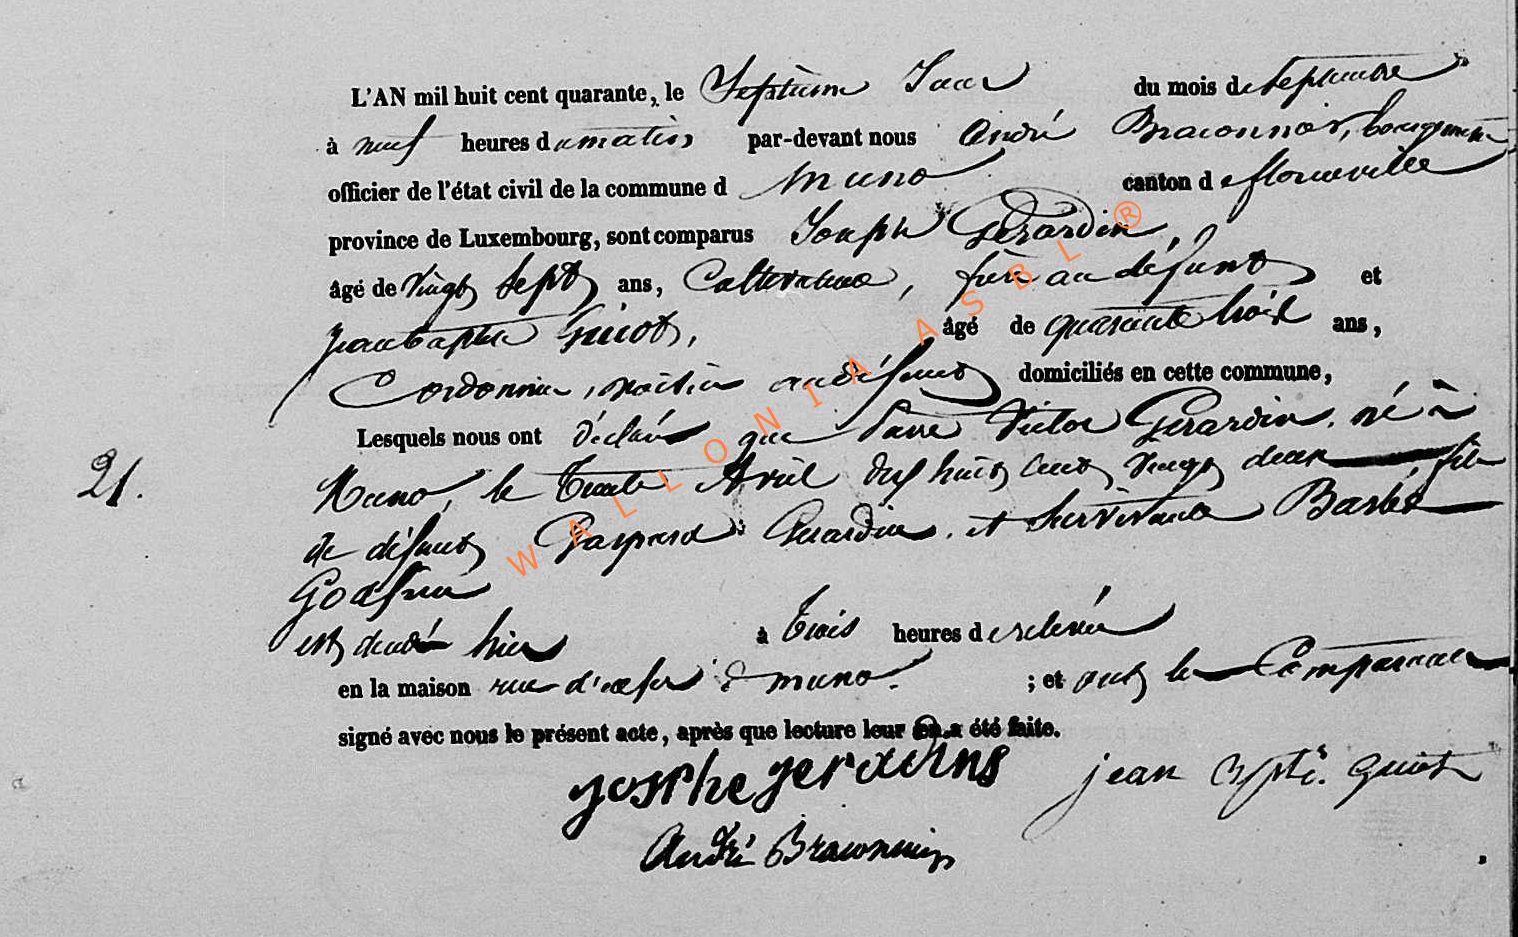 L'AN mil huit cent quarante, le Septième Jour du mois de Septembre
à neuf heures du matin par-devant nous André Braconnier, bourgmestre
officier de l'état civil de la commune d Muno canton de florenville
province de Luxembourg, sont comparus Joseph Gérardin,
âgé de vingt sept ans, Cultivateur, frère au défunt et
jean baptiste Guiot, âgé de quarante trois ans,
Cordonnier, voisin au défunt domiciliés en cette commune,
Lesquels nous ont déclaré que Victor Gérardin, né à
21.
Muno, le trente Avril dix huit cent vingt deux, fils
de défunt Gaspard Gerardin, et survivante Barbe
Godfrin
est décédé hier à trois heures de relevée
en la maison rue d' à muno. ; et ont les Comparans
signé avec nous le présent acte, après que lecture leur en a été faite.
josphe jerardins jean Bpte. guiot
André Braconnier
WALLONIA ASBL ®